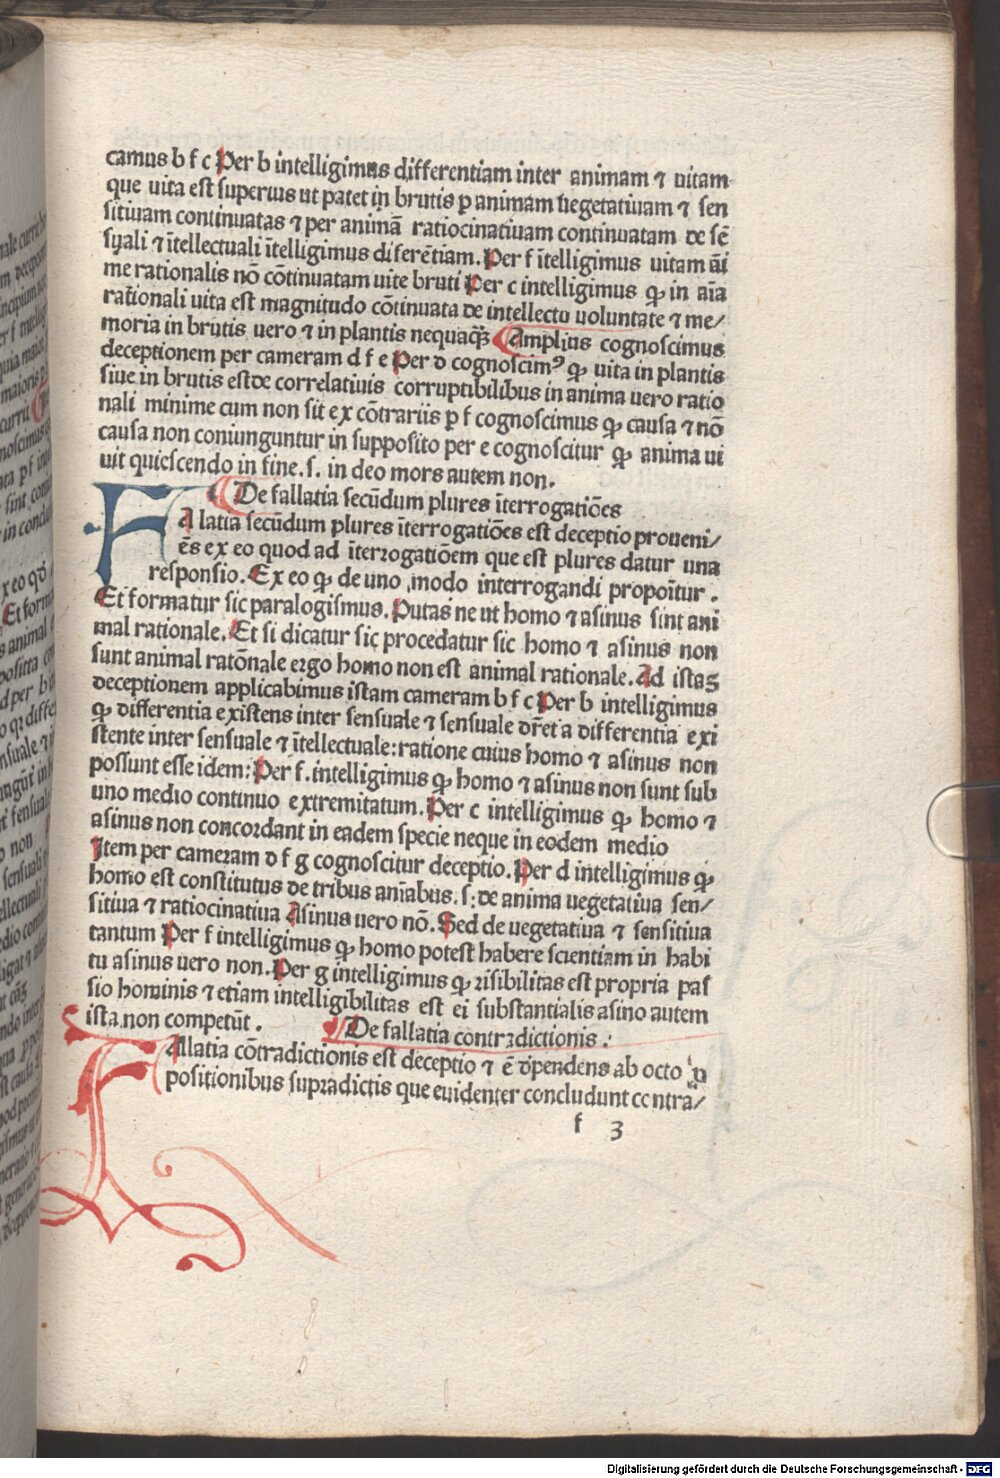 camus b f c Per b intelligimus differentiam inter animam ⁊ uitam
que uita est superius ut patet in brutis p animam uegetatiuam ⁊ sen
sitiuam continuatas ⁊ per animā ratiocinatiuam continuatam de sē
suali ⁊ ītellectuali ītelligimus diferētiam. Per f ītelligimus uitam aīi
me rationalis nō cōtinuatam uite bruti Per c intelligimus ꝙ in aīa
rationali uita est magnitudo cōtinuata de intellectu uoluntate ⁊ me/
moria in brutis uero ⁊ in plantis nequaꝗ̈ Amplius cognoscimus
deceptionem per cameram d f e Per d cognoscimꝰ ꝙ uita in plantis
siue in brutis estde correlatiuis corruptibilibus in anima uero ratio
nali minime cum non sit ex cōtrariis p f cognoscimus ꝙ causa ⁊ nō
causa non coniunguntur in supposito per e cognoscitur ꝙ anima ui
uit quiescendo in fine.s. in deo mors autem non.
De fallatia secūdum plures īterrogatiōes
FA latia secūdum plures īterrogatiōes est deceptio proueni/
ēs ex eo quod ad īterrogatiōem que est plures datur una
responsio. Ex eo ꝙ de uno modo interrogandi propoītur.
Et formatur sic paralogismus. Putas ne ut homo ⁊ asinus sint ani
mal rationale. Et si dicatur sic procedatur sic homo ⁊ asinus non
sunt animal ratōnale ergo homo non est animal rationale. Ad istas
deceptionem applicabimus istam cameram b f c Per b intelligimus
ꝙ differentia existens inter sensuale ⁊ sensuale dr̄et a differentia exi
stente inter sensuale ⁊ ītellectuale: ratione cuius homo ⁊ asinus non
possunt esse idem: Per f. intelligimus ꝙ homo ⁊ asinus non sunt sub
uno medio continuo extremitatum. Per c intelligimus ꝙ homo ⁊
asinus non concordant in eadem specie neque in eodem medio
Item per cameram d f g cognoscitur deceptio. Per d intelligimus ꝙ
homo est constitutus de tribus aniābus.s: de anima uegetatiua sen/
sitiua ⁊ ratiocinatiua Asinus uero nō. Sed de uegetatiua ⁊ sensitiua
tantum Per f intelligimus ꝙ homo potest habere scientiam in habi
tu asinus uero non. Per g intelligimus ꝙ risibilitas est propria pas
sio hominis ⁊ etiam intelligibilitas est ei substantialis asino autem
ista non competūt. De fallatia contradictionis.
FAllatia cōtradictionis est deceptio ⁊ ē dpendens ab octo ꝓ
positionibus supradictis que euidenter concludunt contra/
f 3
Digitalisierung gefördert durch die Deutsche Forschungsgemeinschaft - DFG